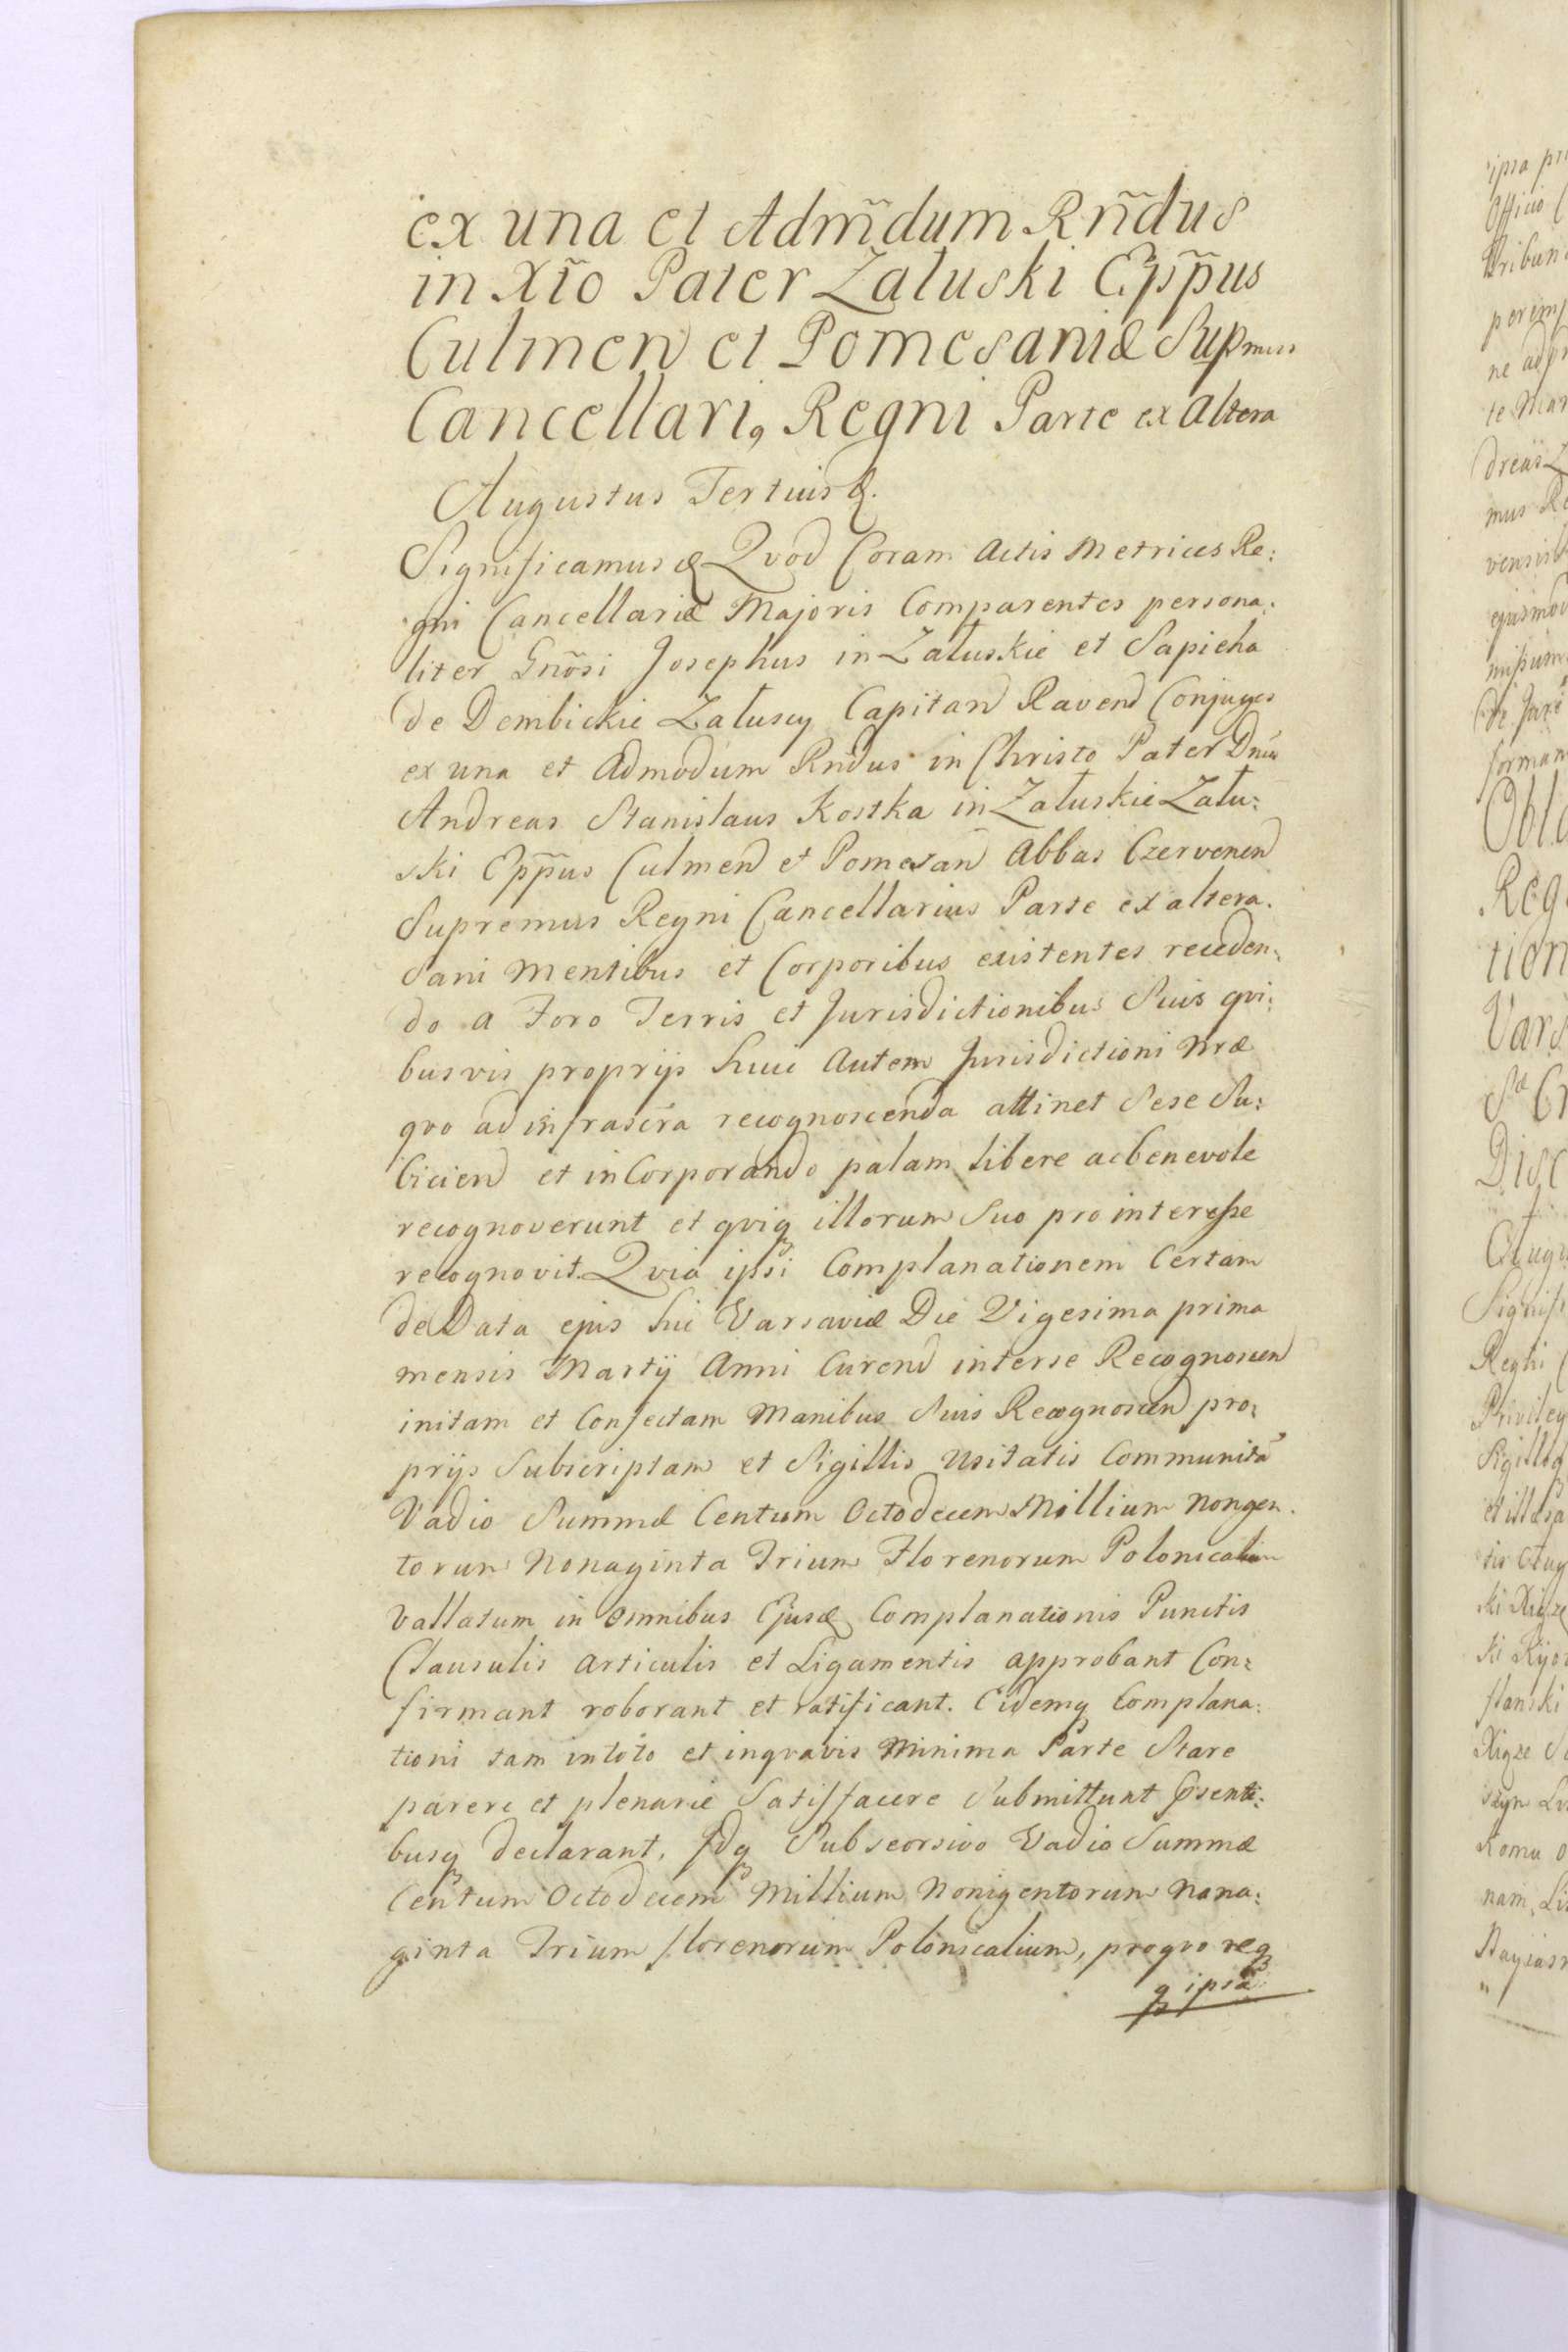 ex una et Adm̃dum Rñdus
in Xt̃o Pater Załuski Epp̃us
Culmen et Pomesaniæ Supmus
Cancellari9 Regni Parte ex Altera
Augustus Tertius &.
Significamus & Qvod Coram Actis Metrices Re:
gni Cancellariæ Majoris Comparentes persona:
liter Gnõsi Josephus in Załuskie et Sapieha
de Dembickie Załuscy Capitan Raven Conjuges
ex una et Admodum Rndus in Christo Pater Dnus
Andreas Stanislaus Kostka in Załuskie Zału:
ski Epp̃us Culmen et Pomesan Abbas Czervenen
Supremus Regni Cancellarius Parte ex altera.
Sani Mentibus et Corporibus existentes receden:
do a Foro Terris et Jurisdictionibus Suis qvi:
busvis proprijs huic Autem Jurisdictioni Nræ
qvo ad infrascra recognoscenda attinet Sese Su:
bicien et inCorporando palam libere ac benevole
recognoverunt et qviq illorum Suo pro interesse
recognovit. Qvia ipsi Complanationem Certam
de Data ejus hic Varsaviæ Die Vigesima prima
mensis Martij Anni Curen inter se Recognoscen
initam et Confectam Manibus Suis Recognoscen pro:
prijs Subscriptam et Sigillis Usitatis Communitã
Vadio Summæ Centum Octodecem Millium Nongen.
torum Nonaginta Trium Florenorum Polonicalium
Vallatum in Omnibus Ejusd Complanationis Punctis
Clausulis Articulis et Ligamentis approbant Con:
firmant roborant et ratificant. Eidemq Complana:
tioni tam in toto et in qvavis Minima Parte Stare
parere et plenarie Satisfacere Submittunt Psenti:
busq declarant, Idq Sub seorsivo Vadio Summæ
Centum Octodecem Millium Nonigentorum Nona:
ginta Trium florenorum Polonicalium, pro qvo req
q ipsa